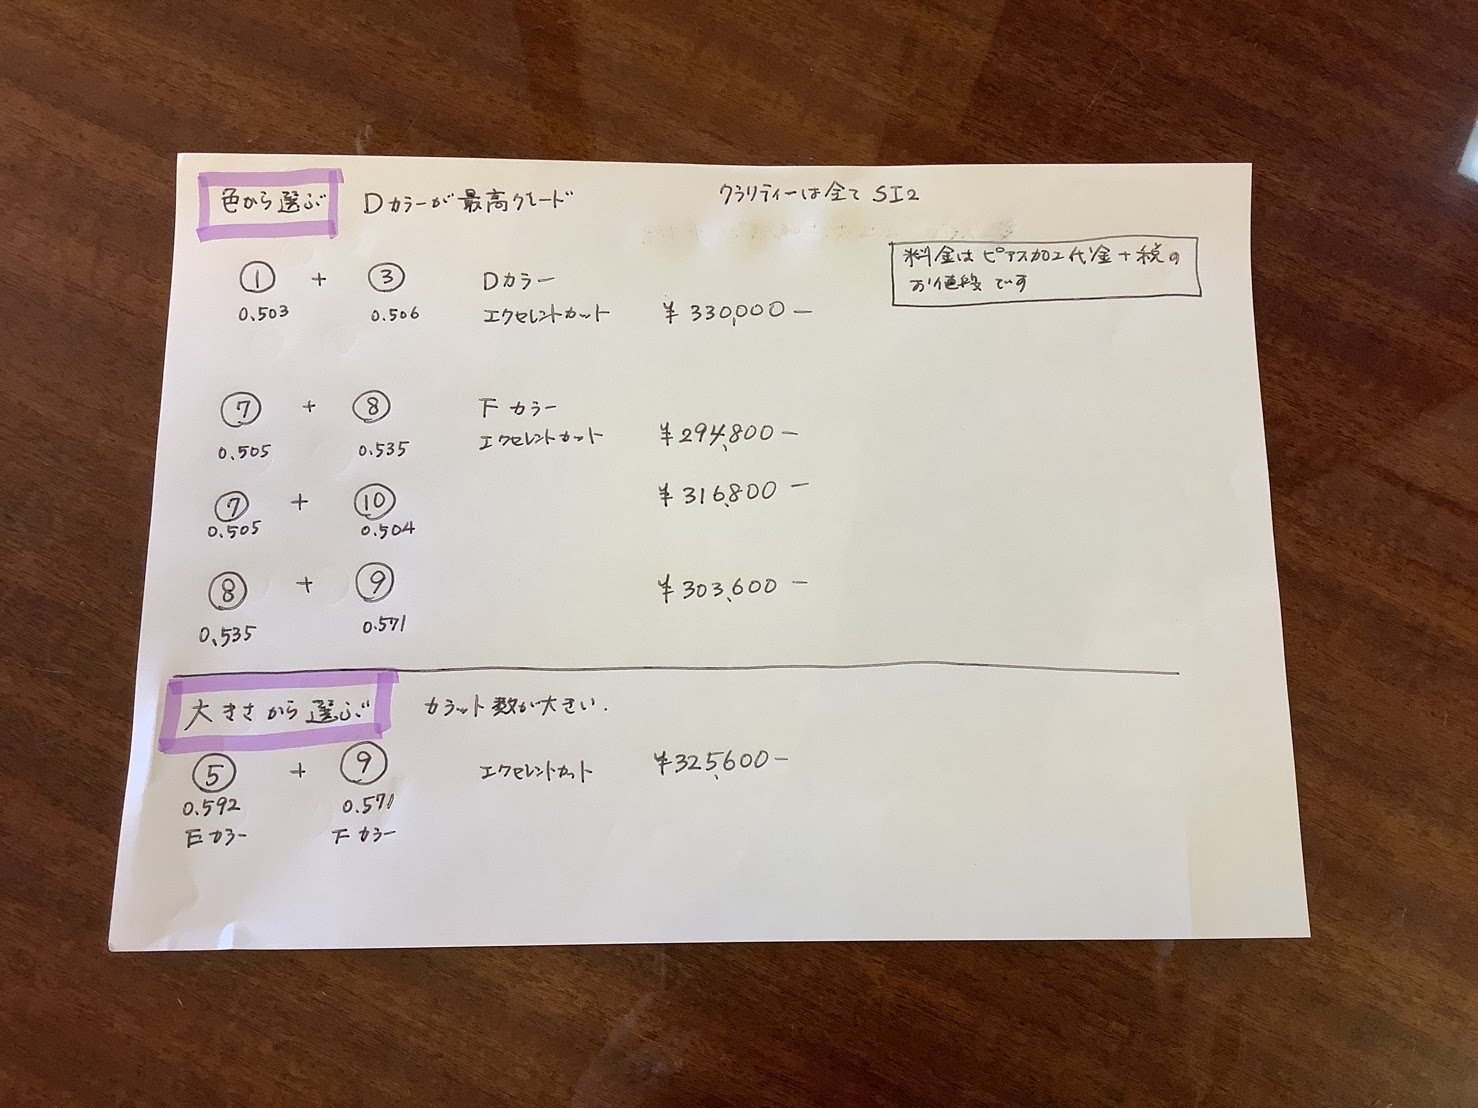 色から選ぶ Dカラーが最高グレード クラリティーは全て SI2
料金はピアス加工代金+税の
お値段です
① + ③ Dカラー
0.503 0.506 エクセレントカット ¥330,000-
⑦ + ⑧ Fカラー
0.505 0.535 エクセレントカット ¥294,800-
⑦ + ⑩ ¥316,800-
0.505 0.504
⑧ + ⑨ ¥303,600-
0.535 0.571
大きさから選ぶ カラット数が大きい.
⑤ + ⑨ エクセレントカット ¥325,600-
0.592 0.571
Eカラー Fカラー